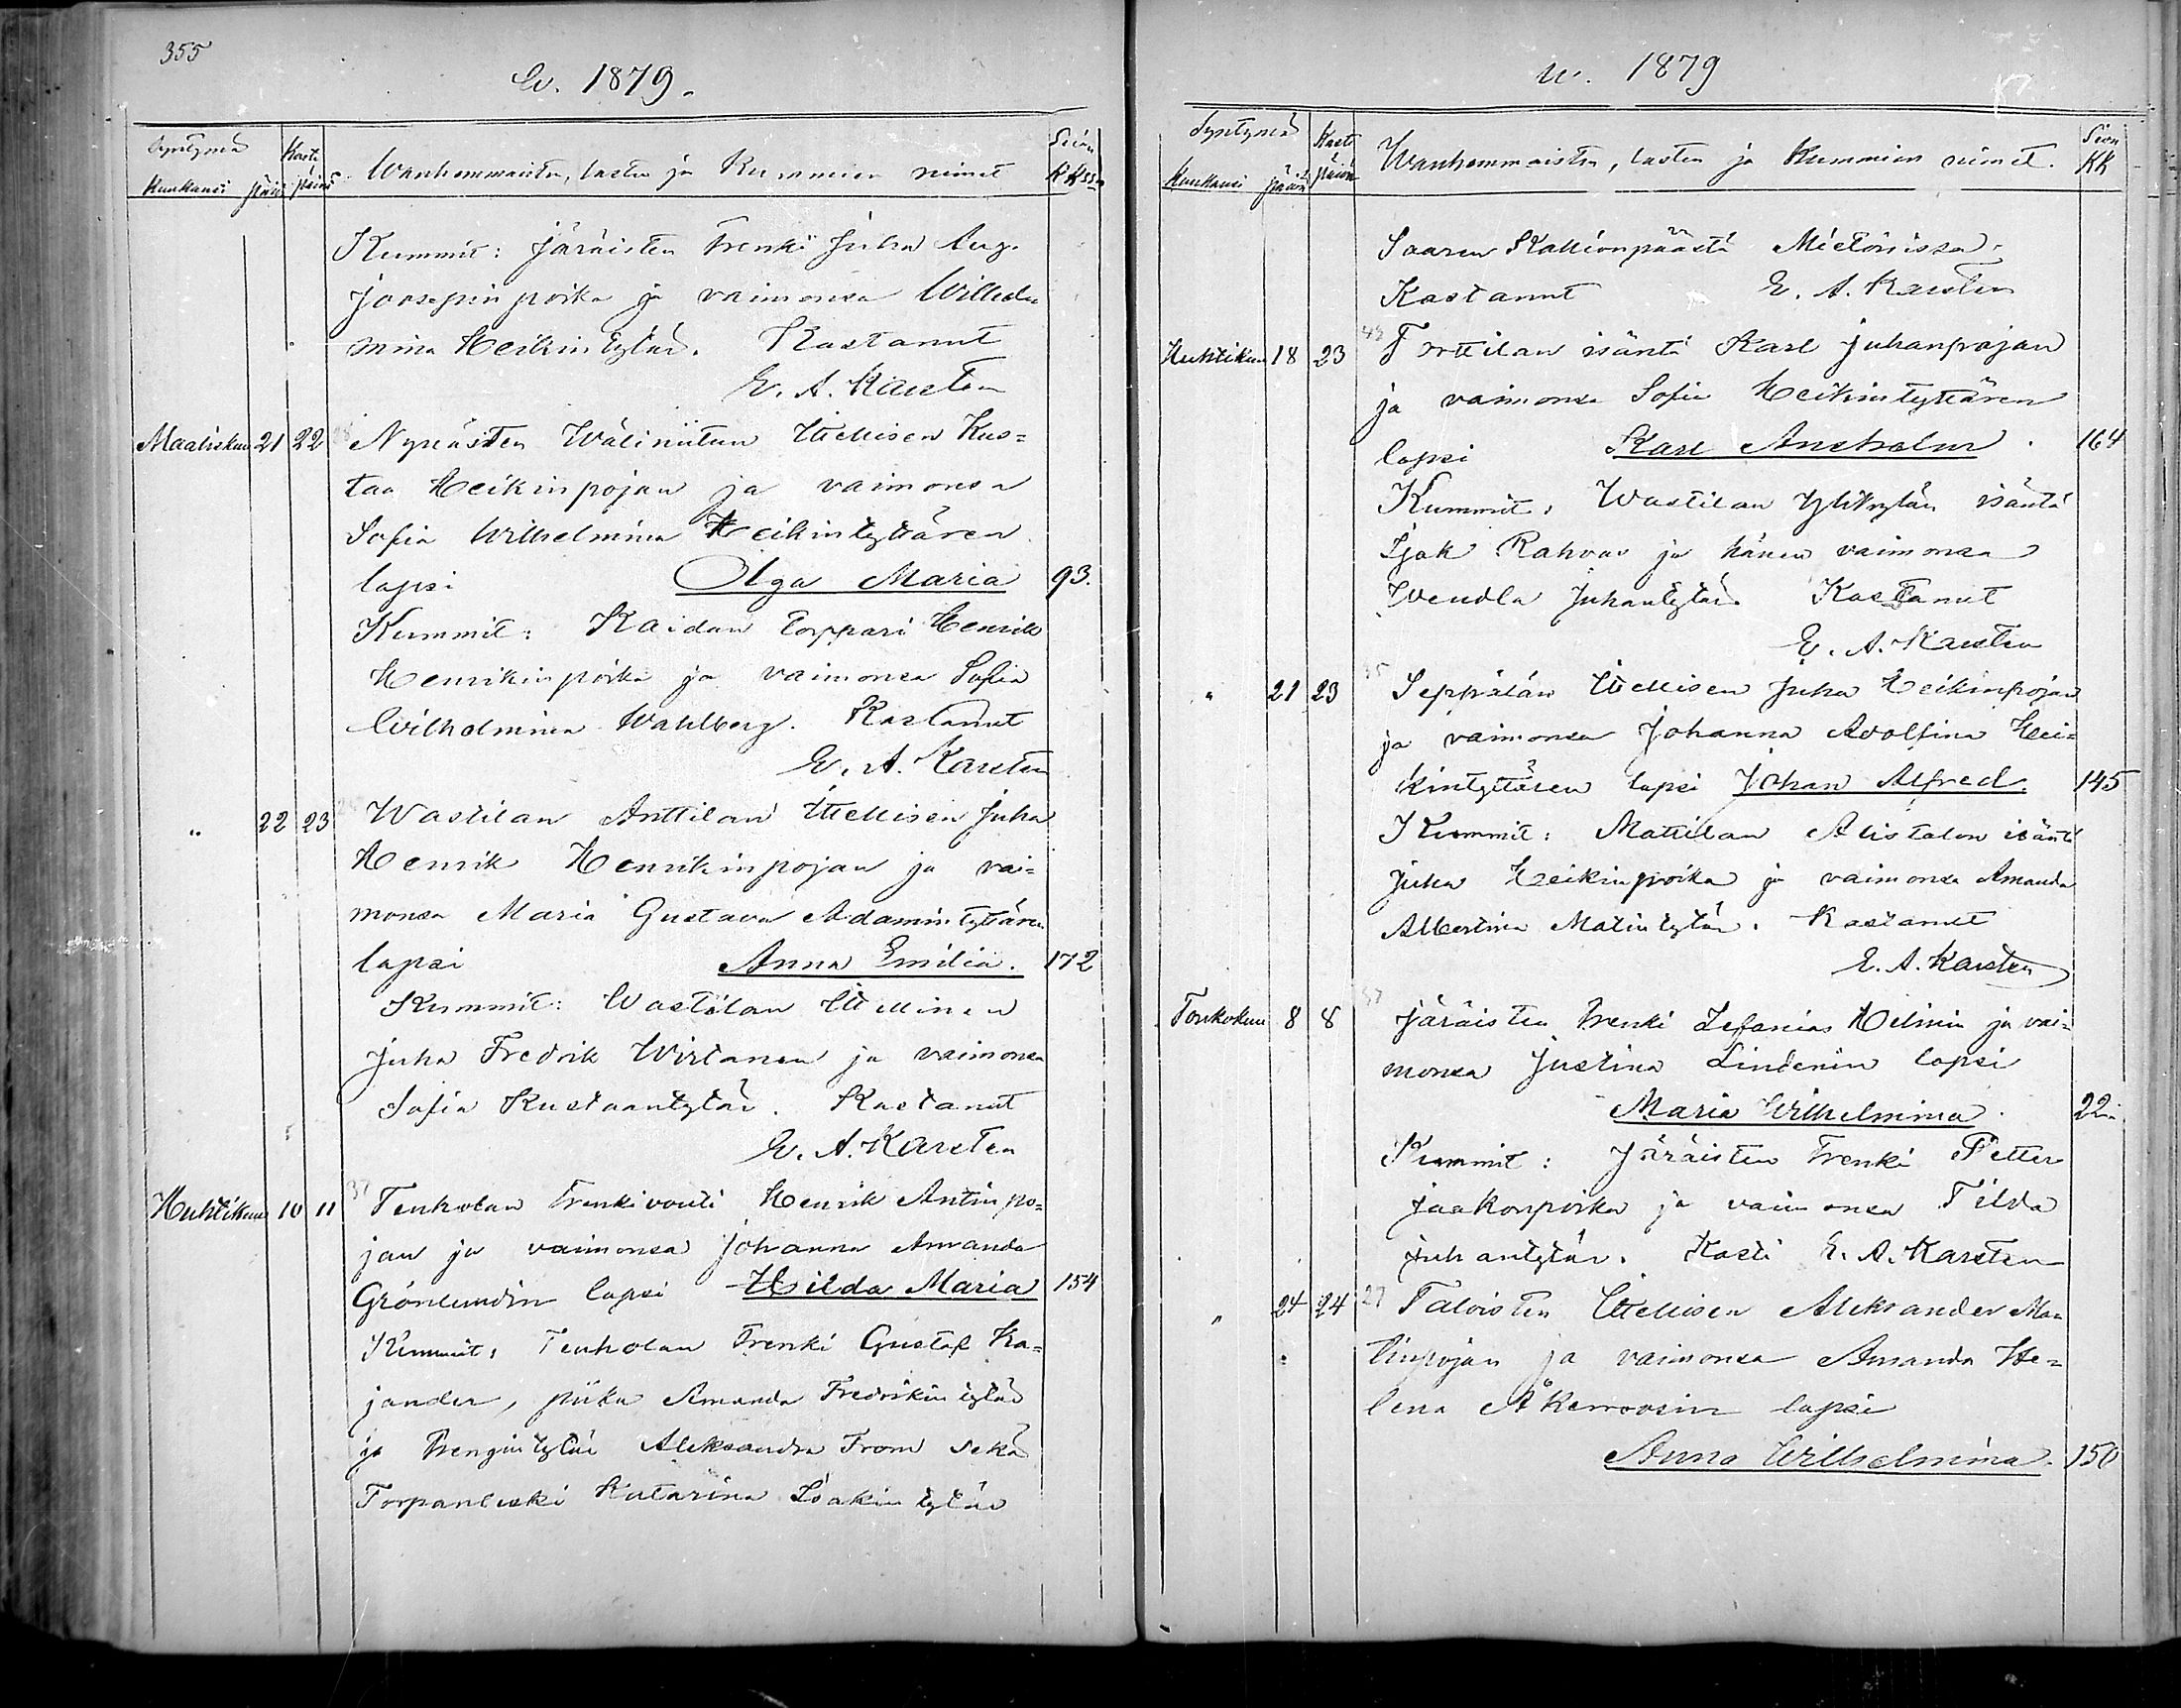 355
w. 1879.
Syntymä
Kuukausi päiv
Kasti
päivä
Wanhemmaisten, lasten ja Kummien nimet
Sivu
KKssa
Kummit: Järäisten trenki Juha Aug.
Joosepin poika ja vaimonsa Wilhel-
mina Heikintytär. Kastanut
E. A. Karsten
Maaliskuu 21 22 Nynäisten Wäliniitun Itellisen Kus=
taa Heikinpojan ja vaimonsa
Sofia Wilhelmina Heikintyttären
lapsi Olga Maria 93.
Kummit: Kaidan torppari Henrik
Henrikinpoika ja vaimonsa Sofia
Wilhelmina Wahlberg. Kastanut
E. A. Karsten
" 22 23 Wastilan Anttilan Itellisen Juha
Henrik Henrikinpojan ja vai=
monsa Maria Gustava Adamintyttären
lapsi Anna Emilia. 172
Kummit: Wastilan Itellinen
Juha Fredrik Wirtanen ja vaimonsa
Sofia Kustaantytär. Kastanut
E. A. Karsten
Huhtikuu 10 11 37 Tenholan Trenkivouti Henrik Antinpo=
jan ja vaimonsa Johanna Amanda
Grönlundin lapsi Hilda Maria 154
Kummit: Tenholan Trenki Gustaf Ka=
jander, piika Amanda Fredrikintytär
ja Trengintytär Aleksandra From sekä
Torpanleski Katarina Isakintytär
w. 1879
Syntymä
Kuukausi päivä
Kast
päivä
Wanhemmaisten, lasten ja Kummien nimet.
Sivu
KK
Saaren Kallionpäästä Mietoisissa.
Kastanut E. A. Karsten
Huhtikuu 18 23 Torttilan isäntä Karl Juhanpojan
ja vaimonsa Sofia Heikintyttären
lapsi Karl Anshelm. 164
Kummit: Wastilan Ylikylän isäntä
Isak Rahvas ja hänen vaimonsa
Wendla Juhantytär. Kastanut
E. A. Karsten
" 21 23 35 Seppälän Itellisen Juha Heikinpojan
ja vaimonsa Johanna Adolfina Hei=
kintyttären lapsi Johan Alfred. 145
Kummit: Mattilan Alistalon isäntä
Juha Heikinpoika ja vaimonsa Amanda
Albertina Matintytär. Kastanut
E. A. Karsten
Toukokuu 8 8 Järäisten trenki Sefanias Helmin ja vai=
monsa Justina Lindenin lapsi
Maria Wilhelmina. 22.
Kummit: Järäisten Trenki Petter
Jaakonpoika ja vaimonsa Tilda
Juhantytär. Kasti E. A. Karsten
" 24 24 27 Taloisten Itellisen Aleksander Ma=
tinpojan ja vaimonsa Amanda He=
lena Åkerroosin lapsi
Anna Wilhelmina. 150